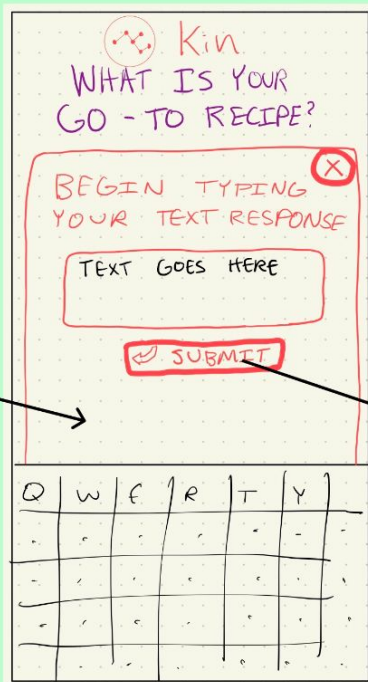 Kin
WHAT IS YOUR
GO-TO RECIPE?
X
BEGIN TYPING
YOUR TEXT RESPONSE
TEXT GOES HERE
SUBMIT
Q W E R T Y